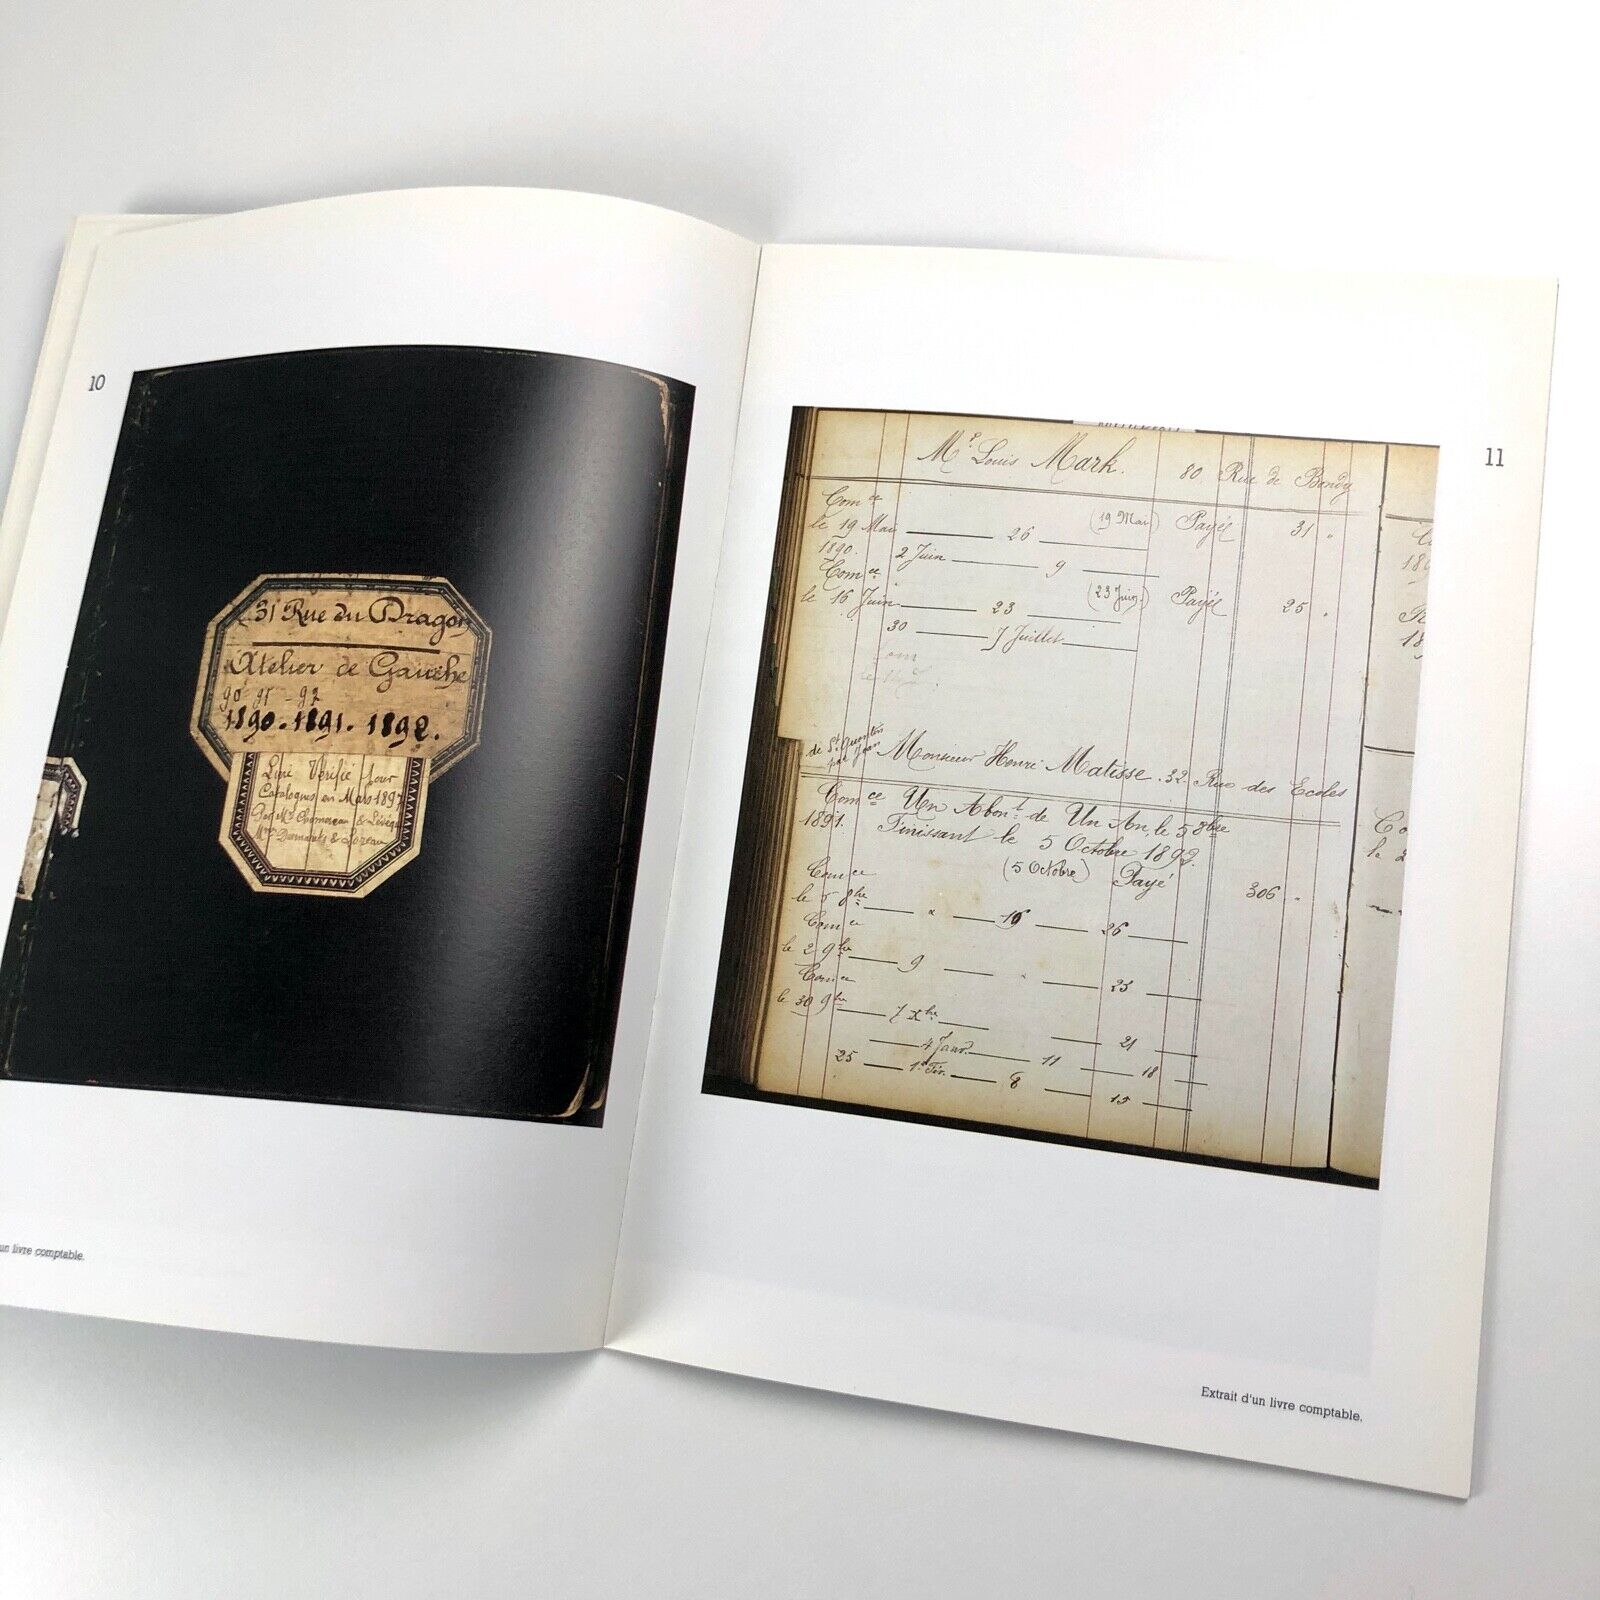 10
31 Rue du Dragon
Atelier de Gauche
90 91 - 92
1890. 1891. 1892.
Livre Vérifié pour
Catalogues en Mars 1897
Par Mrs & Lévêque
Mrs & Loreau
un livre comptable.
11
Mr Louis Mark. 80 Rue de Bondy
Comce
le 19 Mai 26 (19 Mai) Payé 31 "
1890. 2 Juin 9
Comce
le 16 Juin 23 (23 Juin) Payé 25 "
30 7 Juillet
Com
de St Quentin
par Jean
Monsieur Henri Matisse. 32. Rue des Ecoles
Comce Un Abont de Un An, le 5 8bre
1891. Finissant le 5 Octobre 1892.
Comce (5 Octobre) Payé 306 "
le 5 8bre x 16 26
Comce
le 2 9bre 9 x 23
Comce
le 30 9bre 7 Xbre 21
4 Janr. 11 18
25 1er Fév. 8 15
Extrait d'un livre comptable.